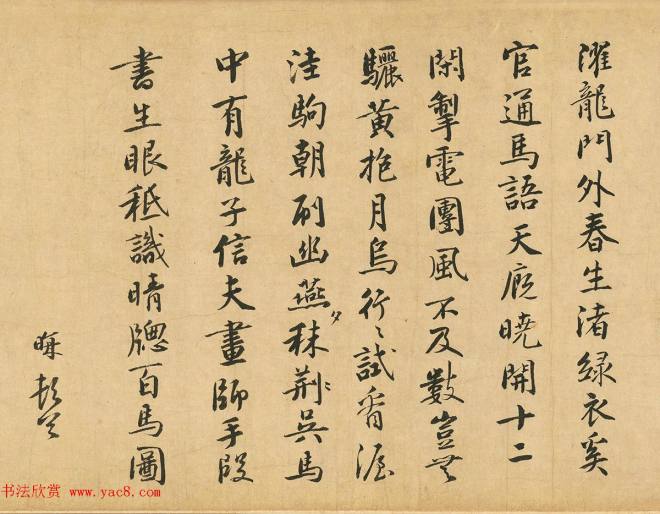 濯龍門外春生渚綠衣奚
官通馬語天廄曉開十二
閑掣電團風不及數豈無
驪黃抱月烏行〻試看渥
洼駒朝刷幽燕夕秣荆吳馬
中有龍子信夫畫師手段
書生眼秪識晴牕百馬圖
書法欣赏 www.yac8.com